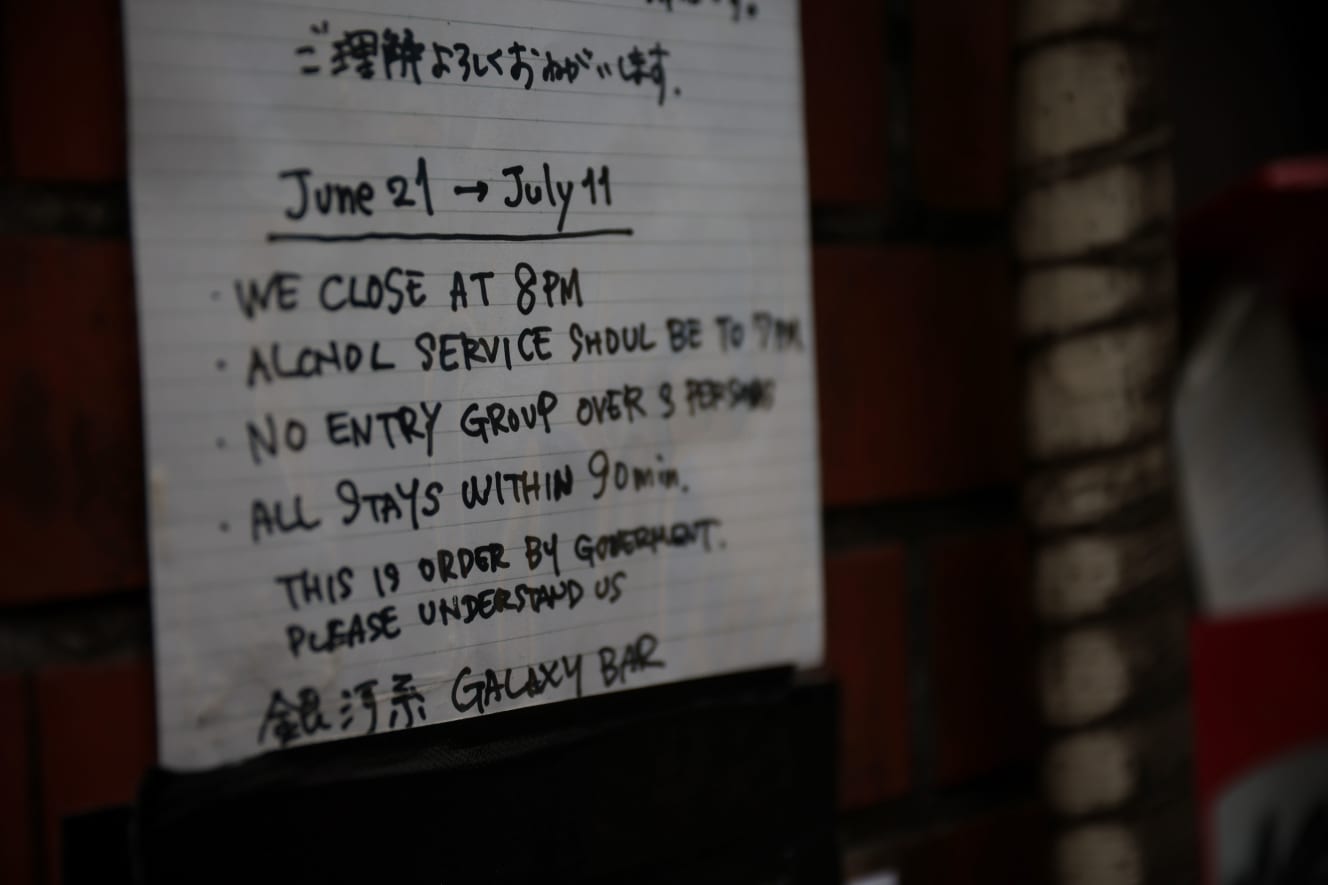 ご理解よろしくおねがいします.
June 21 → July 11
· WE CLOSE AT 8PM
· ALCHOL SERVICE SHOUL BE TO 7PM
· NO ENTRY GROUP OVER 3 PERSONS
· ALL STAYS WITHIN 90min.
THIS IS ORDER BY GOVERMENT.
PLEASE UNDERSTAND US
銀河系 GALAXY BAR